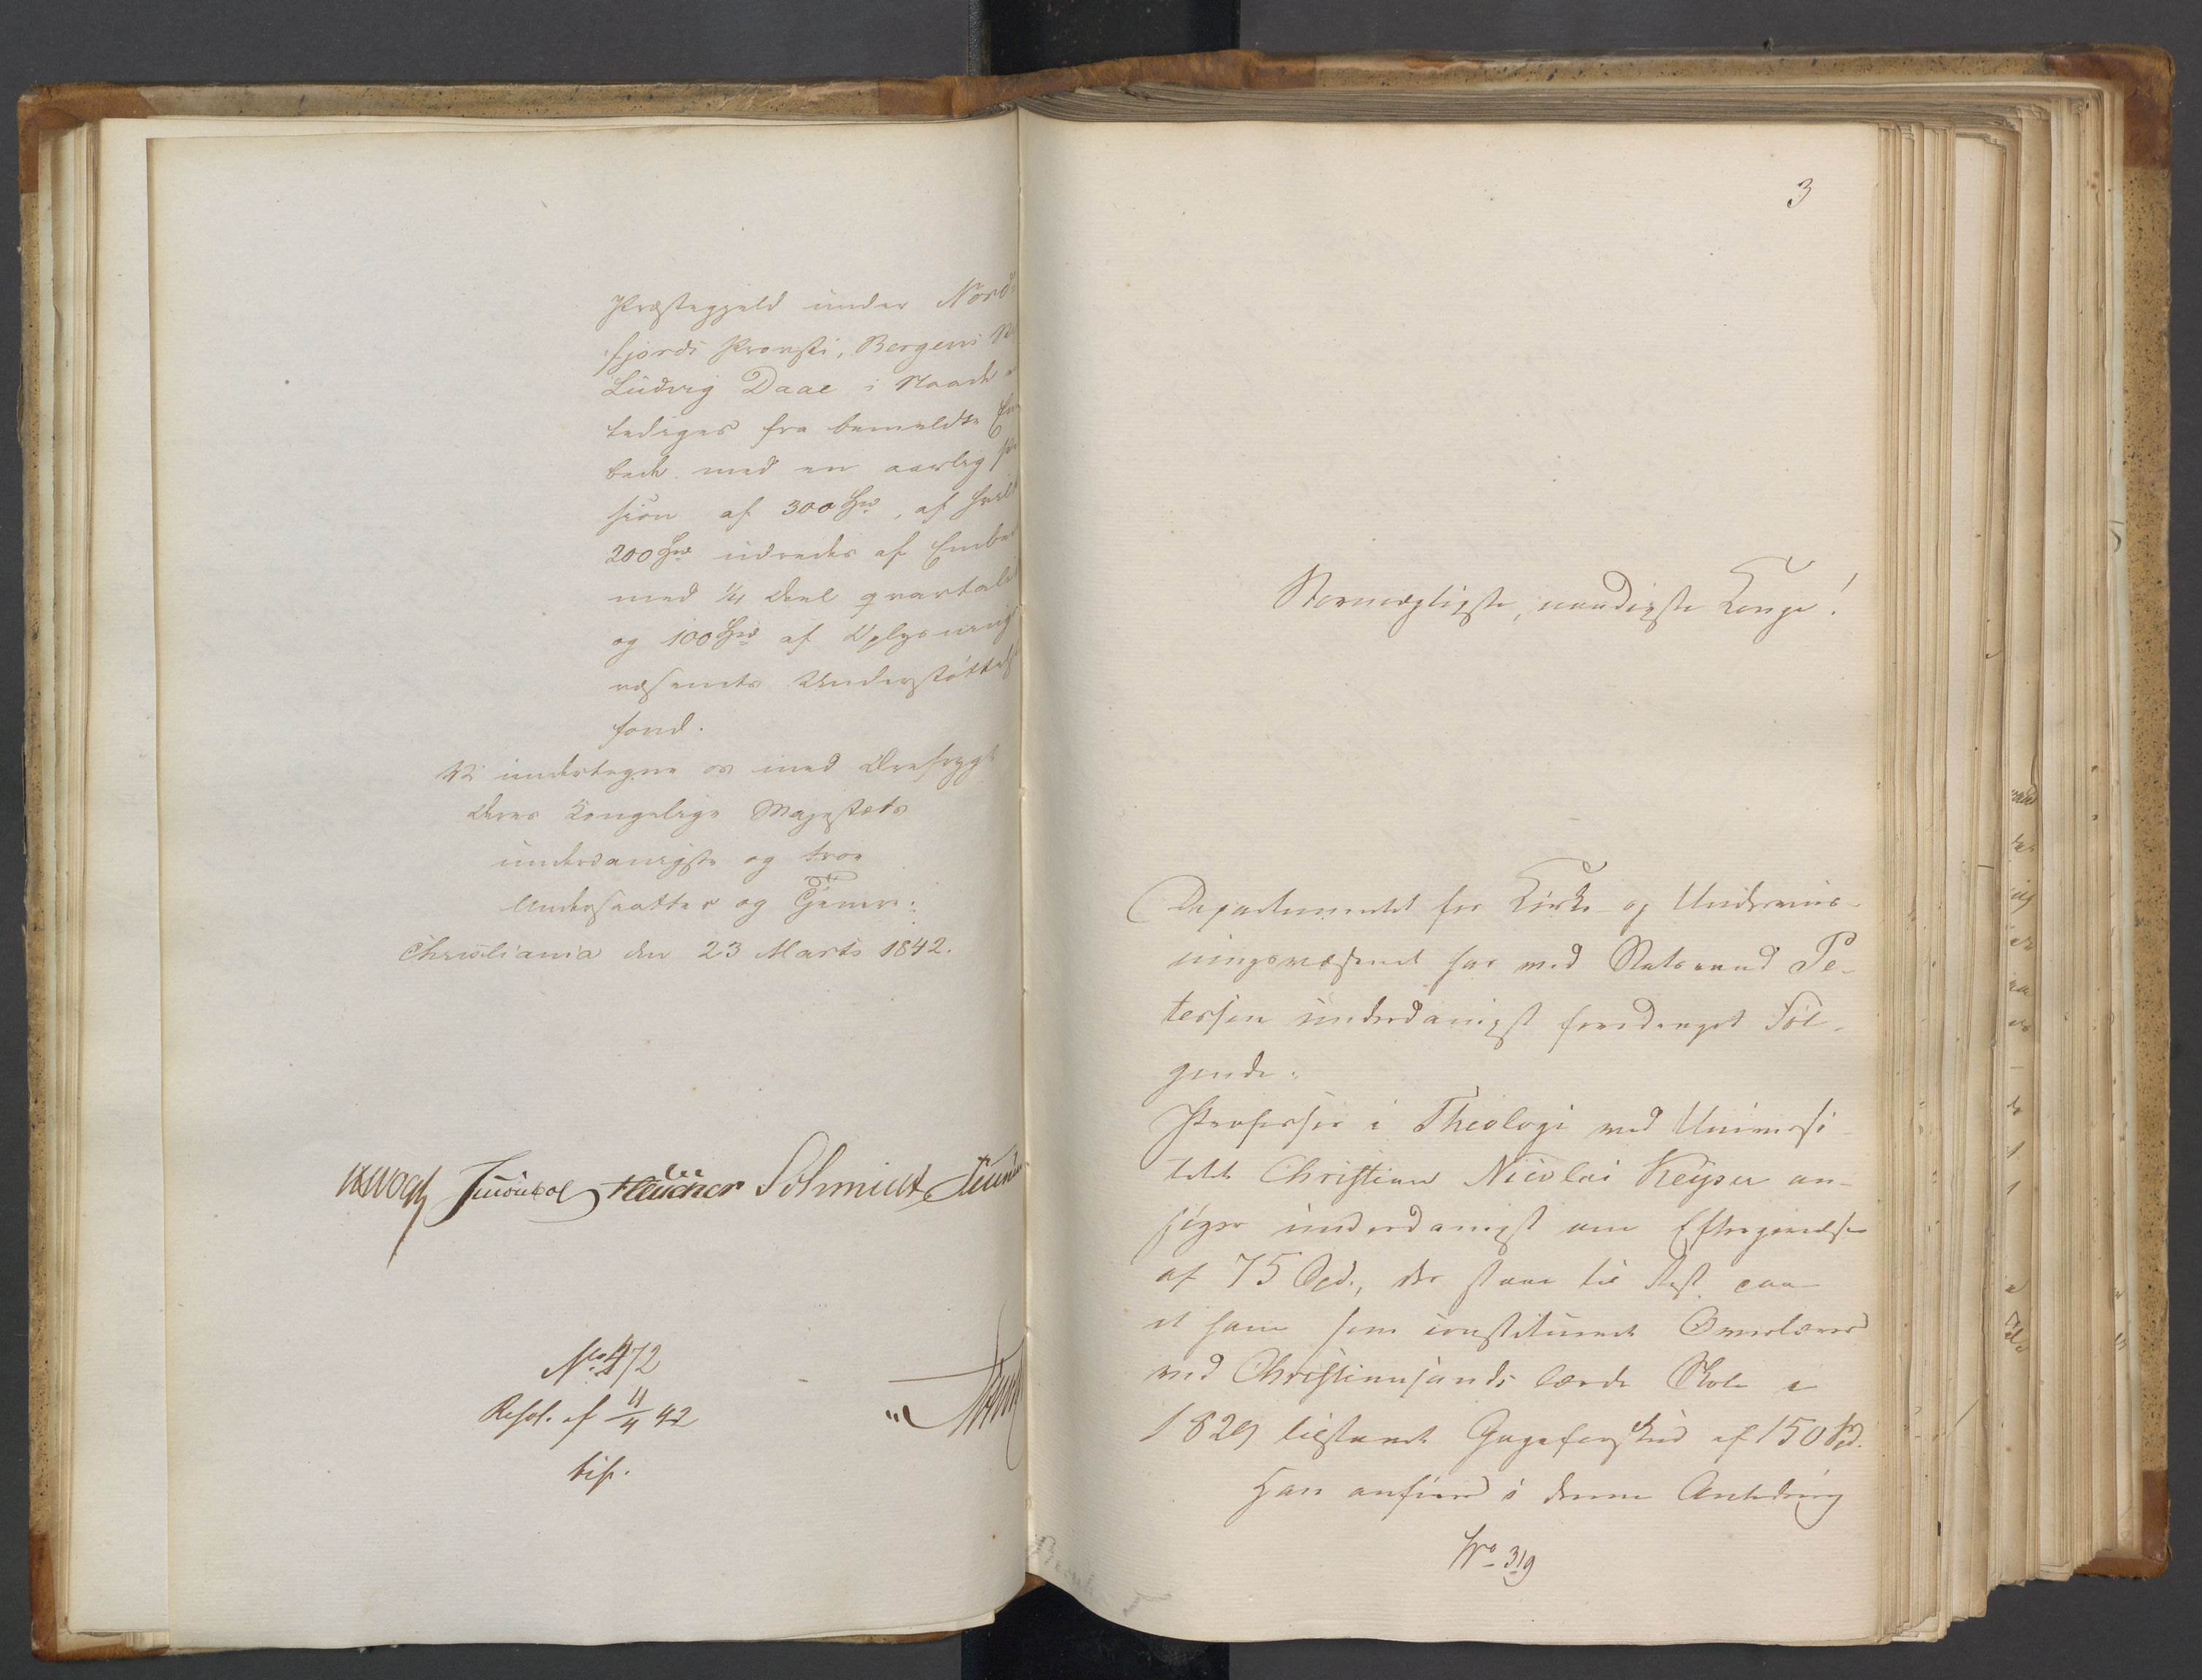 Præstegjeld under Nord-
fjords Provsti, Bergens
Ludvig Daae i Naade
lediges fra bemeldte Em
bede med en aarlig Pen
sion af 300 Spd, af hvilke
200 Spd udredes af Embedet
med 1/4 Deel qvartaliter
og 100 Spd af Oplysnings
væsenets Understøttelses
fond.
Vi undertegne os med Ærefrygt
Deres Kongelige Majestæts
underdanigste og troe
Undersaatter og Tjenere.
Christiania den 23 Marts 1842.
Vogt Hielm Schmidt
No 472
Resol. af 11/4 42
bif.
3
Stormægtigste, naadigste Konge!
Departementet for Kirke- og Undervis-
ningsvæsenet har ved Statsraad Pe-
tersen underdanigst foredraget Føl-
gende:
Professor i Theologi ved Universi-
tetet Christian Nicolai Keyser an-
søger underdanigst om Eftergivelse
af 75 Spd., der staae til Rest paa
et ham som constitueret Overlærer
ved Christianssands lærde Skole i
1829 tilstaaet Gageforskud af 150 Spd.
Han anfører i denne Anledning
No 319